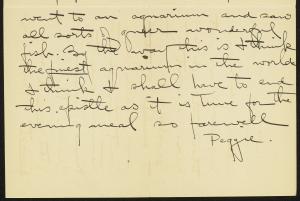 went to an aquarium and saw
all sorts of queer wonderful
fish. By the way this is I think
the best aquarium in the world
I think I shall have to end
this epistle as it is time for the
evening meal so farewell
Peggie.